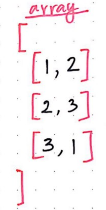 array
[
[1, 2]
[2, 3]
[3, 1]
]